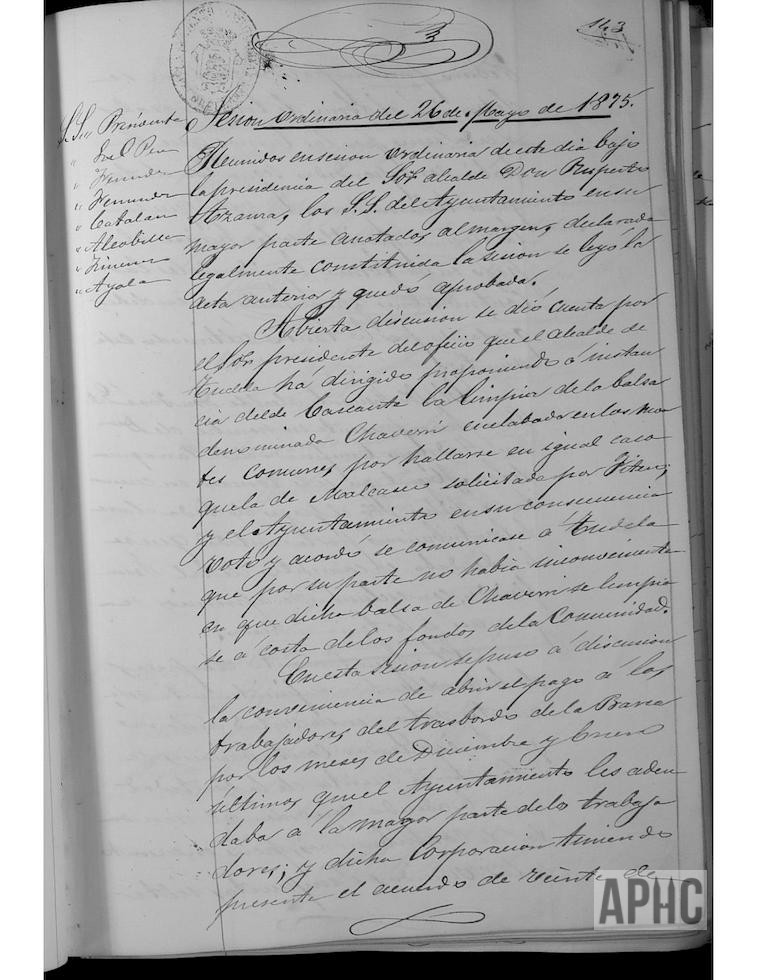 143
Sesion ordinaria del 26 de Mayo de 1875.
S.S. Presidente
" Fernandez
" Catalan
" Jimenez
" Ayala
Reunidos en sesion ordinaria de este dia bajo
la presidencia del Sor. alcalde Don Ruperto
Azanza, los S.S. del Ayuntamiento en su
mayor parte anotados al margen, declarada
legalmente constituida la sesion se leyó la
acta anterior y quedó aprobada.
Abierta discusion se dió cuenta por
el Sor. presidente del oficio que el alcalde de
Tudela há dirigido proponiendo á instan
cia del de Cascante la limpia de la balsa
denominada Chaverri enclabada en los mon
tes comunes, por hallarse en igual caso
que la de Malcaseo solicitada por Fitero;
y el Ayuntamiento en su consecuencia
votó y acordó se comunicase á Tudela
que por su parte no habia inconveniente
en que dicha balsa de Chaverri se limpia
se á costa de los fondos de la Comunidad.
En esta sesion se puso á discusion
la conveniencia de abrir el pago á los
trabajadores del trasbordo de la Barca
por los meses de Diciembre y Enero
últimos que el Ayuntamiento les adeu
daba á la mayor parte de los trabaja
dores; y dicha Corporacion teniendo
presente el acuerdo de veinte de
APHC